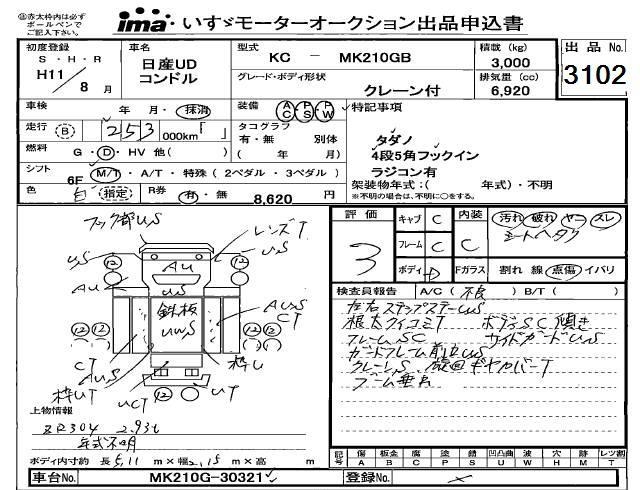 ㊟赤太枠内は必ず
ボールペンで
ご記入下さい。
ima いすゞモーターオークション出品申込書
初度登録
S・H・R
H11/8月
車名
日産UD
コンドル
型式
KC － MK210GB
グレード・ボディ形状
クレーン付
積載(kg)
3,000
排気量(cc)
6,920
出品No.
3102
車検 年・月・抹消
走行 B 253 000km「 」
燃料 G・D・HV 他( )
シフト 6F M/T・A/T・特殊(2ペダル・3ペダル)
色 白 指定
R券 有・無 8,620 円
装備 AC・PS・PW
タコグラフ
有・無 別体
( 年 月)
特記事項
タダノ
4段5角フックイン
ラジコン有
架装物年式:( 年式)・不明
※不明の場合は、不明に○をする。
フック部US
レンズT
US
US
AU
AU
US
鉄板
UWS
AUS
CT
CT
AUS
枠UT
枠U
UCT
UT
上物情報
ZR304 2.93t
年式不明
ボディ内寸約 長5.11m×幅2.15m×高 m
評価
3
キャブ C
フレーム C
ボディ D
内装
C
Fガラス
汚れ 破れ ヤニ スレ
シートヘタリ
割れ 線 点傷 イバリ
検査員報告 A/C( 不良 ) B/T( )
左右ステップステーUS
根太クイコミT ボディSC傾き
フレームSC サイドガードUS
クレーンS
ブーム垂れ
記号 傷 板金 腐 塗 錆 凹凸曲 波 穴 跡 レツ割
A B C P S U W H M T
車台No. MK210G-30321
登録No.